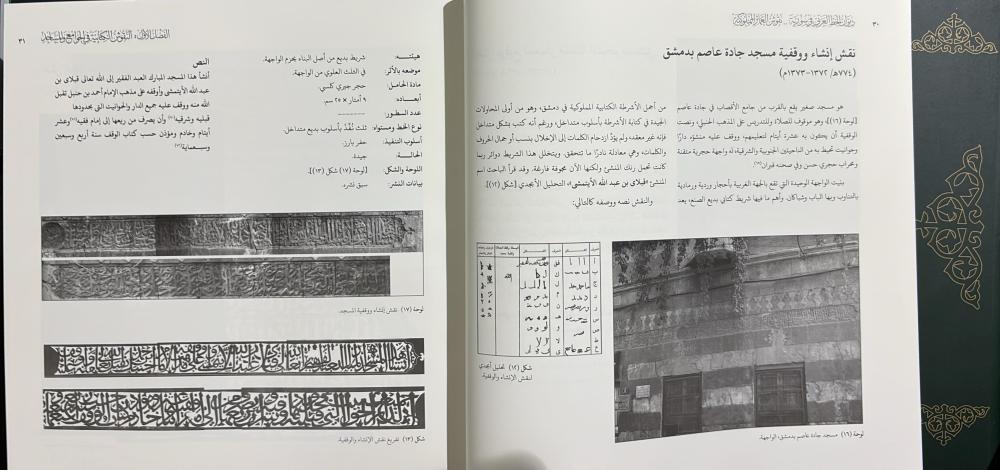 ٣٠
ديوان الخط العربي في سورية .. نقوش العمائر المملوكية
نقش إنشاء ووقفية مسجد جادة عاصم بدمشق
(٧٧٤هـ/ ١٣٧٢-١٣٧٣م)
هو مسجد صغير يقع بالقرب من جامع الأقصاب في جادة عاصم
[لوحة (١٦)]، وهو موقوف للصلاة وللتدريس على المذهب الحنبلي، ونصت
الوقفية أن يكون به عشرة أيتام لتعليمهم، ووقف عليه منشؤه دارًا
وحوانيت تحيط به من الناحيتين الجنوبية والشرقية، له واجهة حجرية متقنة
ومحراب حجري حسن وفي صحنه قبران
بنيت الواجهة الوحيدة التي تقع بالجهة الغربية بأحجار وردية ورمادية
بالتناوب وبها الباب وشباكان. وأهم ما فيها شريط كتابي بديع الصنع، يعد
من أجمل الأشرطة الكتابية المملوكية في دمشق، وهو من أولى المحاولات
الجيدة في كتابة الأشرطة بأسلوب متداخل، ورغم أنه كتب بشكل متداخل
فإنه غير معقد، ولم يؤدِّ ازدحام الكلمات إلى الإخلال بنسب أو جمال الحروف
والكلمات، وهي معادلة نادرًا ما تتحقق. ويتخلل هذا الشريط دوائر ربما
كانت تحمل رنك المنشئ ولكنها الآن مجوفة فارغة. وقد قرأ الباحث اسم
المنشئ «قبلاي بن عبد الله الأيتمشي»، التحليل الأبجدي [شكل (١٢)].
والنقش نصه ووصفه كالتالي:
شكل (١٢) تحليل أبجدي
لنقش الإنشاء والوقفية.
لوحة (١٦) مسجد جادة عاصم بدمشق، الواجهة.
٣١
الفصل الأول: النقوش الكتابية في الجوامع والمساجد
هيئته: شريط بديع من أصل البناء يحزم الواجهة.
موضعه بالأثر: في الثلث العلوي من الواجهة.
مادة الحامل: حجر جيري كلسي.
أبعاده: ٩ أمتار × ٢٥ سم.
عدد السطور: --------
نوع الخط ومستواه: ثلث نُفِّذ بأسلوب بديع متداخل.
أسلوب التنفيذ: حفر بارز.
الحالة: جيدة.
اللوحة والشكل: [لوحة (١٧) شكل (١٣)].
بيانات النشر: سبق نشره.
النص
أنشأ هذا المسجد المبارك العبد الفقير إلى الله تعالى قبلاي بن
عبد الله الأيتمشي وأوقفه على مذهب الإمام أحمد بن حنبل تقبل
الله منه ووقف عليه جميع الدار والحوانيت التي يحدودها
قبليه وشرقيه وأن يصرف من ريعها إلى إمام فقيه وعشر
أيتام وخادم ومؤذن حسب كتاب الوقف سنة أربع وسبعين
وسبعماية
لوحة (١٧) نقش إنشاء ووقفية المسجد.
شكل (١٣) تفريغ نقش الإنشاء والوقفية.